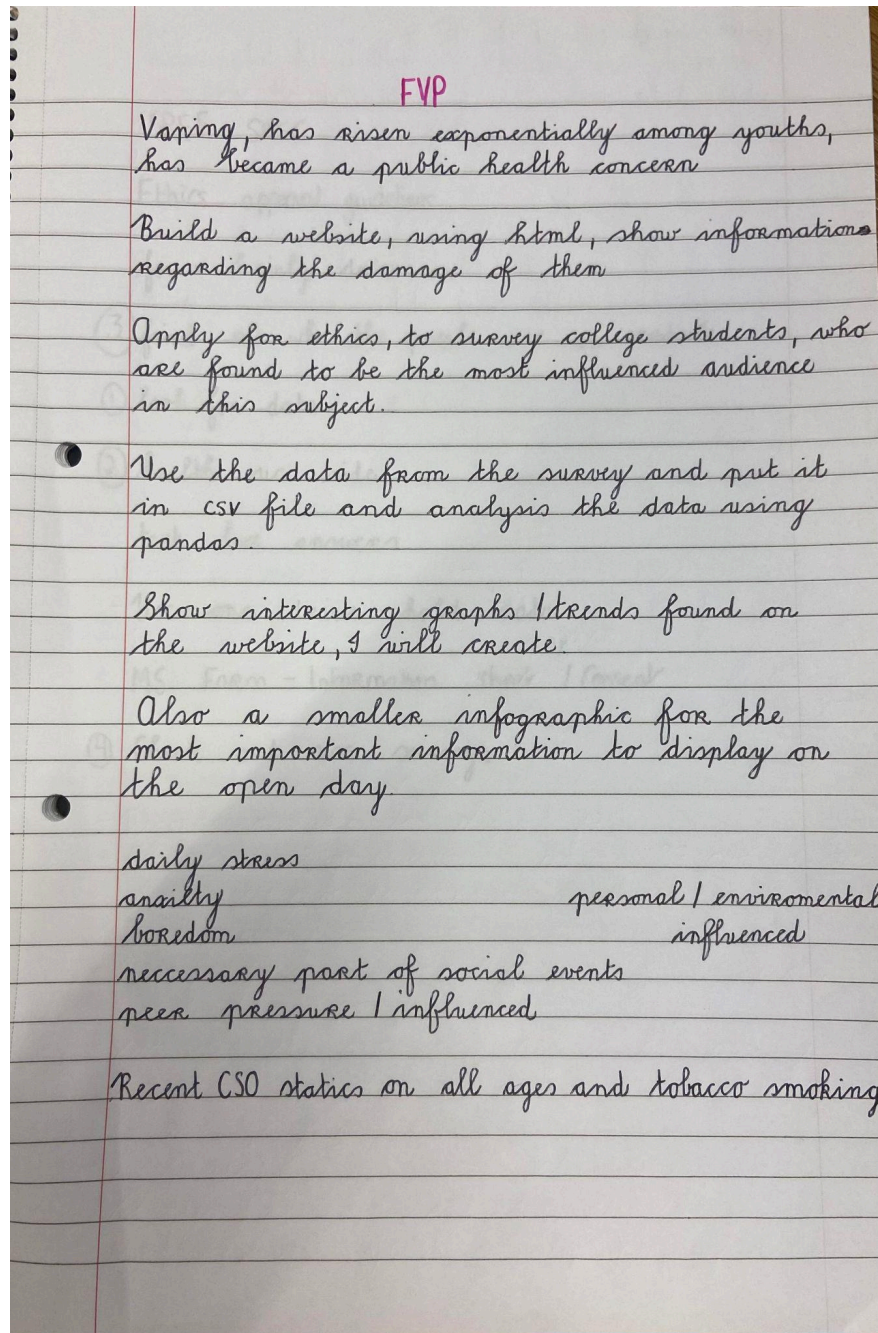 FYP
Vaping, has risen exponentially among youths,
has became a public health concern
Build a website, using html, show information
regarding the damage of them
Apply for ethics, to survey college students, who
are found to be the most influenced audience
in this subject.
Use the data from the survey and put it
in csv file and analysis the data using
pandas.
Show interesting graphs / trends found on
the website, I will create.
Also a smaller infographic for the
most important information to display on
the open day.
daily stress
anxilty personal / enviromental
boredom influenced
neccessary part of social events
peer pressure / influenced
Recent CSO statics on all ages and tobacco smoking